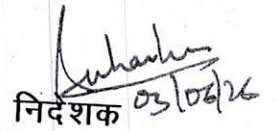 निदेशक 03/06/26